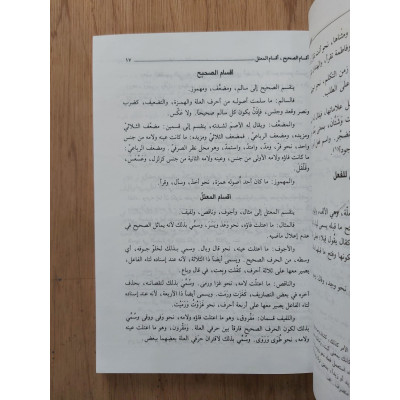 أقسام الصحيح ، أقسام المعتل ١٧
أقسام الصحيح
ينقسم الصحيح إلى سالم، ومضعَّف، ومهموز.
فالسالم: ما سلمت أصوله من أحرف العلة والهمزة، والتضعيف، كضرب
ونصر وقعد وجلس، فإذن يكون كل سالم صحيحًا، ولا عكس.
والمضعّف: ويقال له الأصم لشدته، ينقسم إلى قسمين: مضعّف الثلاثيّ
ومزيده، ومضعف الرباعيّ ومزيده. فمضعف الثلاثيّ ومزيده: ما كانت عينه ولامه
من جنس واحد، نحو فرّ، ومدّ، وامتدّ، واستمدّ، وهو محل نظر الصرفيّ. ومضعف الرباعيّ:
ما كانت فاؤه ولامه الأولى من جنس، وعينه ولامه الثانية من جنس كزلزل، وعَسْعَس،
وقَلْقَل.
والمهموز: ما كان أحد أصوله همزة، نحو أخذ، وسأل، وقرأ.
أقسام المعتلّ
ينقسم المعتل إلى مثال، وأجوف، وناقص، ولفيف.
فالمثال: ما اعتلت فاؤه، نحو وعَد، ويَسَر، وسُمِّي بذلك لأنه يماثل الصحيح في
عدم إعلال ماضيه.
والأجوف: ما اعتلت عينه، نحو قال وباع. وسمي بذلك لخلوّ جوفه، أي
وسطه، من الحرف الصحيح. ويسمى أيضاً ذا الثلاثة، لأنه عند إسناده لتاء الفاعل،
يصير معها على ثلاثة أحرف، كقلت وبعت، في قال وباع.
والناقص: ما اعتلت لامه، نحو غزا ورمى. وسُمّي بذلك لنقصانه، بحذف
آخره في بعض التصاريف، كغزت ورمت. ويسمى أيضاً ذا الأربعة، لأنه عند إسناده
لتاء الفاعل يصير معها على أربعة أحرف، نحو غَزَوْت ورَمَيْت.
واللفيف قسمان: مَفْروق، وهو ما اعتلت فاؤه ولامه، نحو وفى ووقى، وسُمّي
بذلك لكون الحرف الصحيح فارقاً بين حرفي العلة. ومَقْرون، وهو ما اعتلت عينه
ولامه، نحو طَوى ورَوى. وسُمّي بذلك لاقتران حرفي العلة بعضهما ببعض.